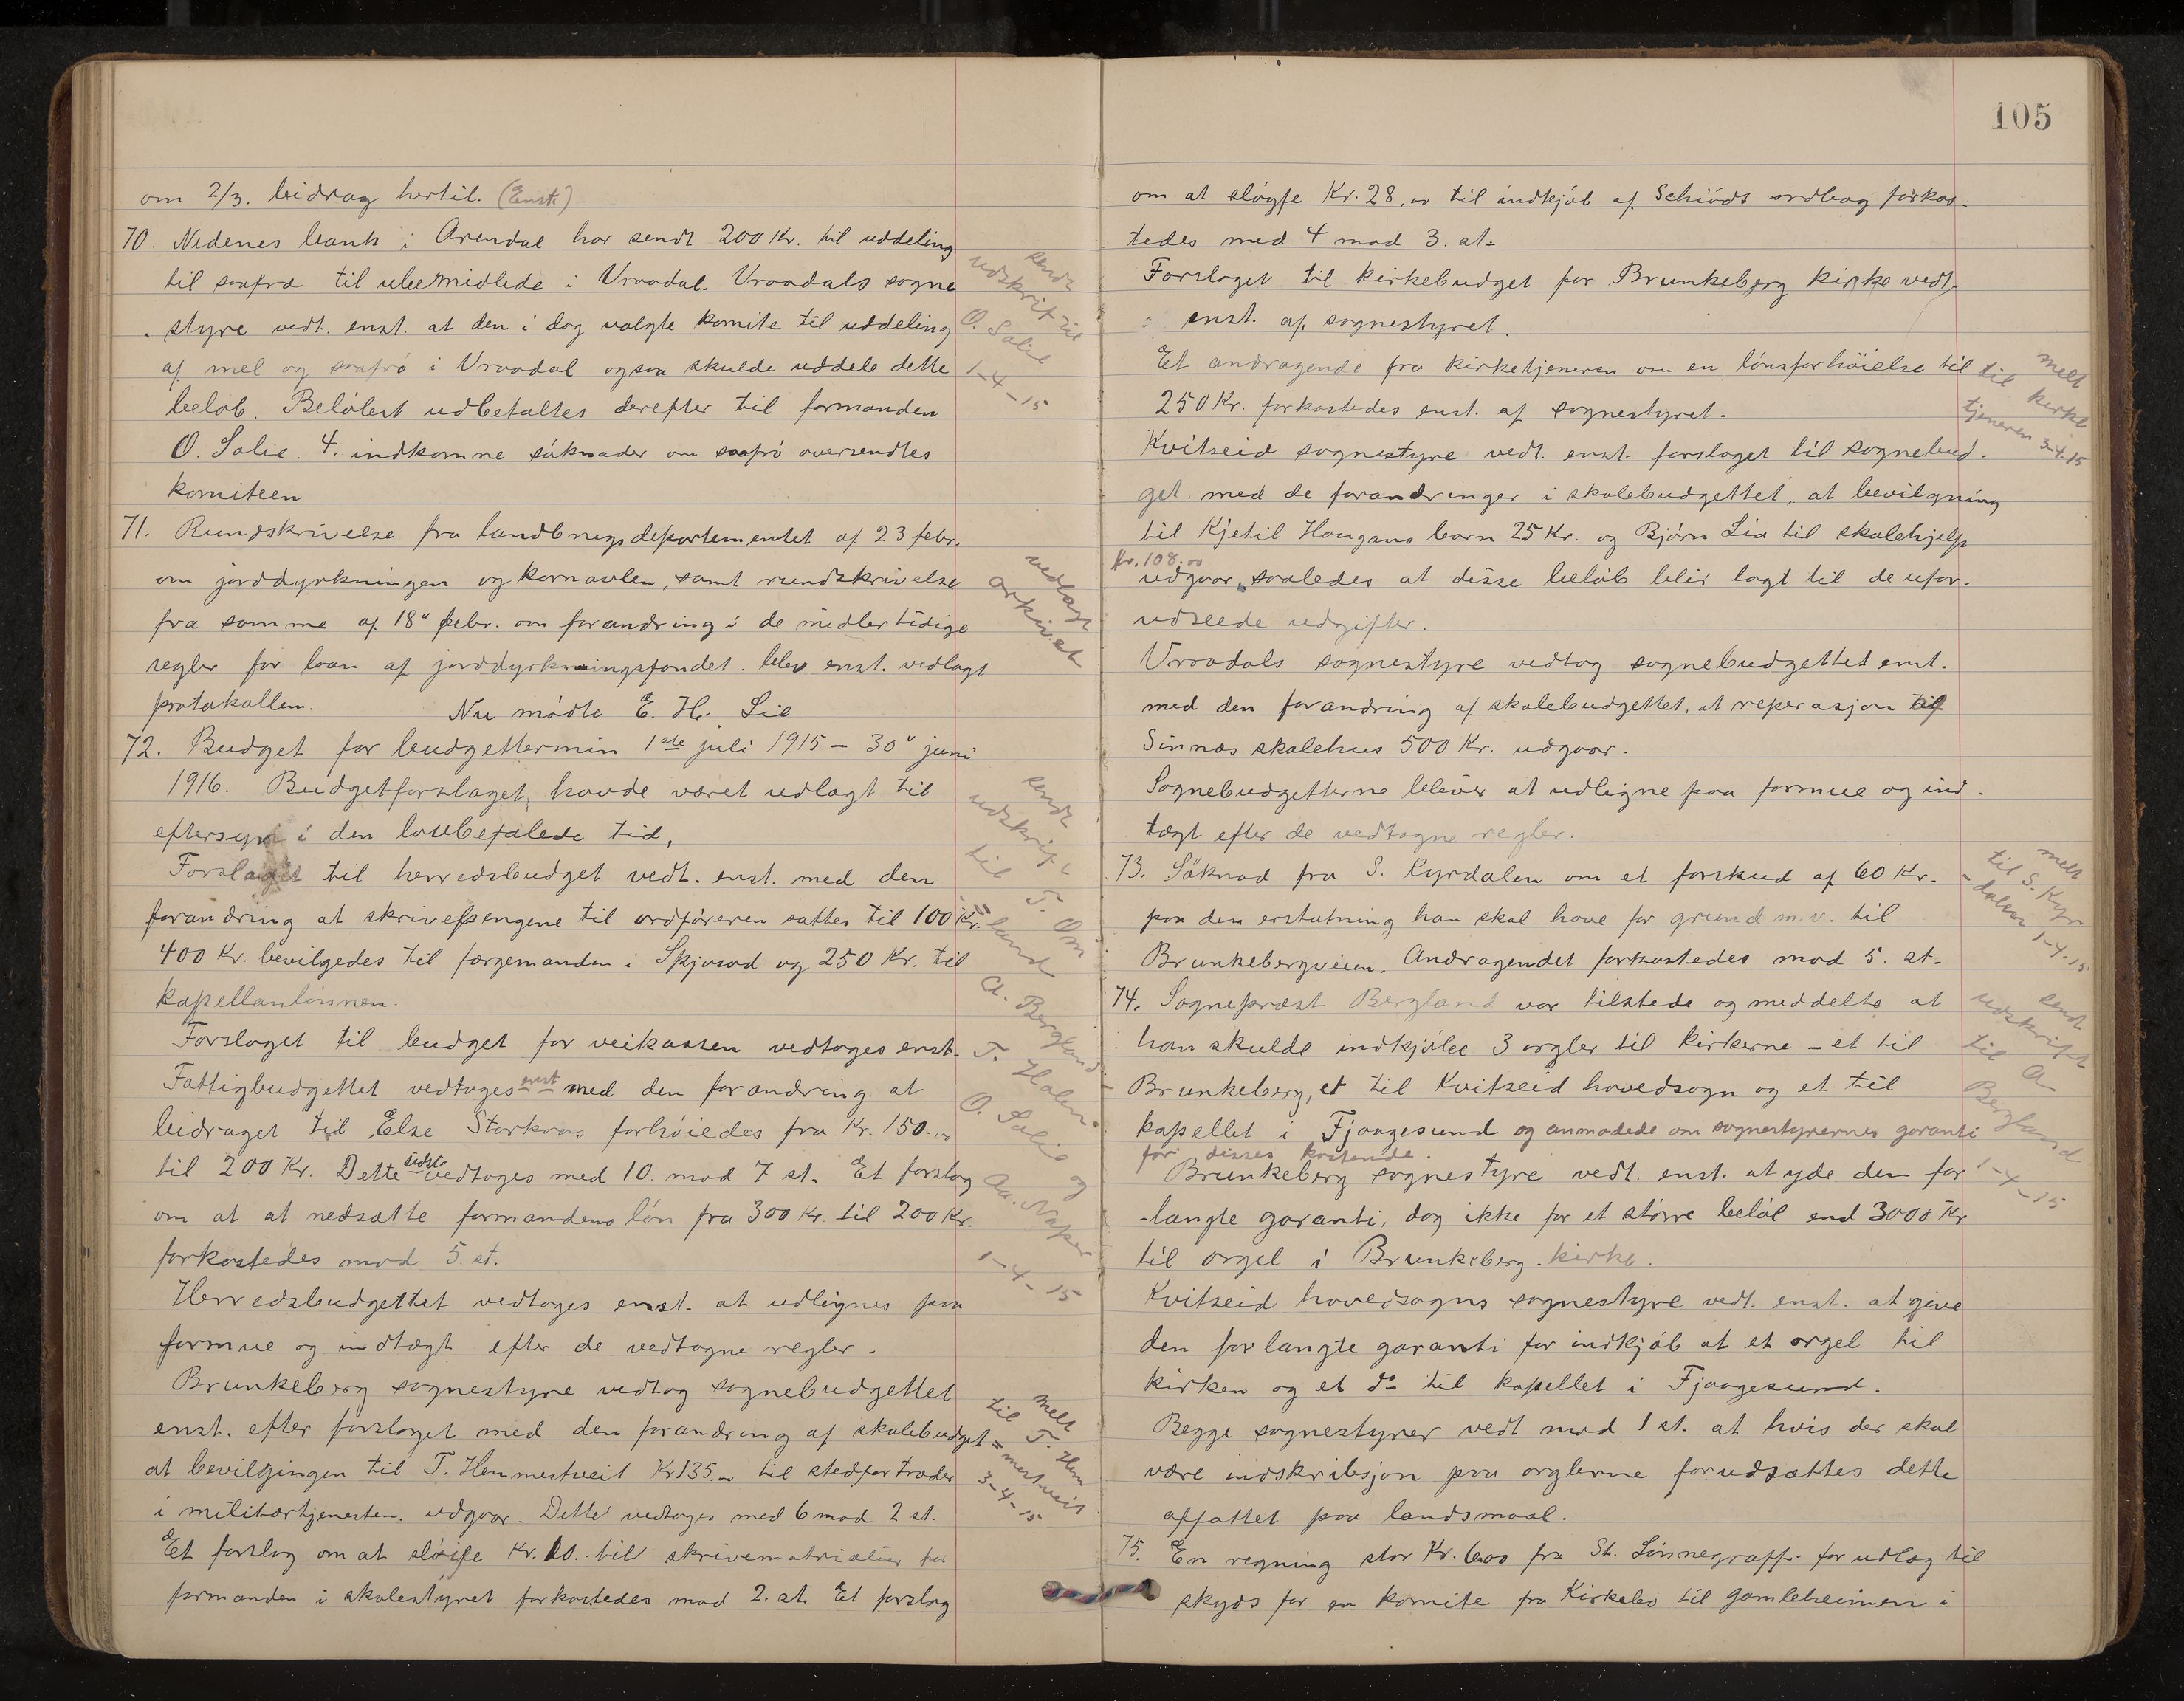 om 2/3. bidrag hertil. (Enst.)
70. Nedenes bank i Arendal har sendt 200 Kr. til uddeling
til saafrø til ubemidlede i Vraadal. Vraadals sogne
styre vedt. enst. at den i dag valgte komite til uddeling
af mel og saafrö i Vraadal ogsaa skulde uddele dette
belöb. Belöbet udbetaltes derefter til formanden
O. Solie. 4. indkomne söknader om saafrö oversendtes
komiteen
sendt
udskrift til
O. Solie
1-4-15
71. Rundskrivelse fra landbrugsdepartementet af 23 febr.
om jorddyrkningen og kornavlen, samt rundskrivelse
fra samme af 18" febr. om forandring i de midlertidige
regler for laan af jorddyrkningsfondet. blev enst. vedlagt
protokollen. Nu mödte E. H. Lie
vedlagt
arkivet
72. Budget for budgettermin 1ste juli 1915 - 30" juni
1916. Budgetforslaget havde været udlagt til
eftersyn i den lovbefalede tid,
Forslaget til herredsbudget vedt. enst. med den
forandring at skrivepengene til ordföreren sattes til 100 Kr.
400 Kr. bevilgedes til færgemanden i Skjosod og 250 Kr. til
kapellanlönnen.
Forslaget til budget for veikassen vedtoges enst.
Fattigbudgettet vedtoges enst med den forandring at
bidraget til Else Storkaas forhöiedes fra Kr. 150.00
til 200 Kr. Dette sidste vedtoges med 10. mod 7 st. Et forslag
om at at nedsætte formandens lön fra 300 Kr. til 200 Kr.
forkastedes mod 5. st.
Herredsbudgettet vedtoges enst. at udlignes paa
formue og indtægt efter de vedtagne regler.
sendt
udskrift
til T. Om
=land
A. Bergland
T. Holen
O. Solie og
Aa. Naper
1-4-15
Brunkeberg sognestyre vedtog sognebudgettet
enst. efter forslaget med den forandring af skolebudget
at bevilgingen til T. Hemmestveit Kr 135.00 til stedfortræder
i militærtjenesten. udgaar. Dette vedtoges med 6 mod 2 st.
Et forslag om at slöife Kr. 10.. til skrivematrialier for
formanden i skolestyret forkastedes mod 2. st. Et forslag
melt
til T. Hem
=mestveit
3-4-15
105
om at slöyfe Kr. 28,00 til indkjöb af Schiöds ordbog forkas-
tedes med 4 mod 3. st.
Forslaget til kirkebudget for Brunkeberg kirke vedt.
enst. af sognestyret.
Et andragende fra kirketjeneren om en lönsforhöielse til
250 Kr. forkastedes enst. af sognestyret.
melt
til kirke
tjeneren 3-4-15
Kvitseid sognestyre vedt. enst. forslaget til sognebud-
get. med de forandringer i skolebudgettet, at bevilgning
til Kjetil Haugans barn 25 Kr. og Björn Lia til skolehjelp
Kr. 108.00
udgaar, saaledes at disse belöb blir lagt til de ufor-
udseede udgifter.
Vraadals sognestyre vedtog sognebudgettet enst.
med den forandring af skolebudgettet, at reperasjon til
Sinnas skolehus 500 Kr. udgaar.
Sognebudgetterne bliver at udligne paa formue og ind-
tægt efter de vedtagne regler.
73. Söknad fra S. Kyrdalen om et forskud af 60 Kr.
paa den erstatning han skal have for grund m.v. til
Brunkebergveien. Andragendet forkastedes mod 5. st.
melt
til S. Kyr
-dalen 1-4-15
74. Sogneprest Bergland var tilstede og meddelte at
han skulde indkjöbe 3 orgler til kirkerne - et til
Brunkeberg, et til Kvitseid hovedsogn og et til
kapellet i Fjaagesund og anmodede om sognestyrernes garanti
for disses kostende.
Brunkeberg sognestyre vedt. enst. at yde den for
-langte garanti, dog ikke for et större belöb end 3000 Kr
til orgel i Brunkeberg. kirke.
Kvitseid hovedsogns sognestyre vedt. enst. at give
den forlangte garanti for indkjöb at et orgel til
kirken og et do til kapellet i Fjaagesund.
Begge sognestyrer vedt mod 1 st. at hvis der skal
være indskribsjon paa orglerne forudsættes dette
affattet paa landsmaal.
sendt
udskrift
til A
Bergland
1-4-15
75. En regning stor Kr. 6.00 fra St. Lönnegraff. for udlæg til
skyds for en komite fra Kirkebö til gamleheimen i